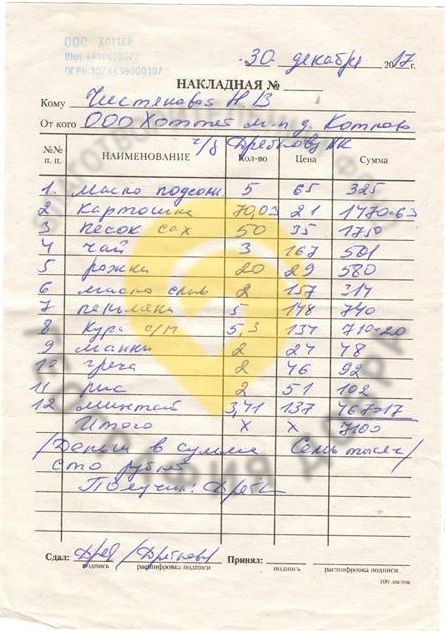 ООО ХОТТЕЙ
30 декабря 2017г.
НАКЛАДНАЯ №
Кому Чистяковой Н В
От кого ООО Хоттей м-н д.
№№ п. п. НАИМЕНОВАНИЕ Кол-во Цена Сумма
1. Масло подсолн 5 65 325
2 Картошка 70,03 21 1470=63
3 Песок сах 50 35 1750
4 Чай 3 167 501
5 рожки 20 29 580
6 масло слив 2 157 314
7 пельмени 5 148 740
8 Кура с/м 5,3 134 710=20
9 манка 2 24 48
10 греча 2 46 92
11 рис 2 51 102
12 минтай 3,41 137 467=17
Итого х х 7100
/Деньги в сумме Семь тысяч/
сто рублей
Получил:
Сдал: Принял:
подпись расшифровка подписи подпись расшифровка подписи
100 листов